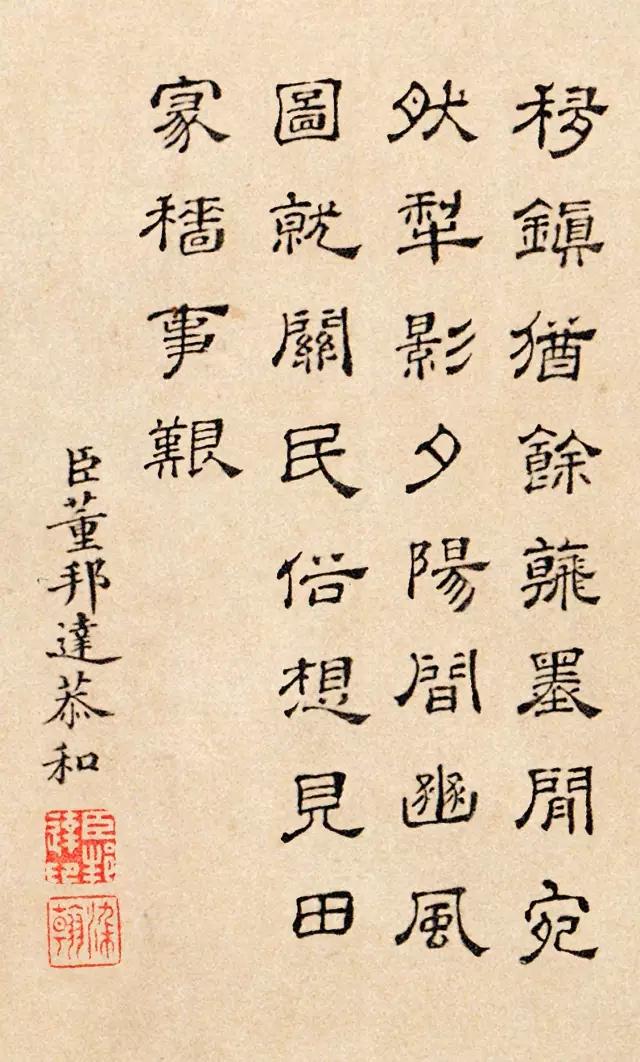 移鎮猶餘蘸墨閒宛
然犁影夕陽間豳風
圖就關民俗想見田
家穡事艱
臣董邦達恭和
臣邦達印
染翰